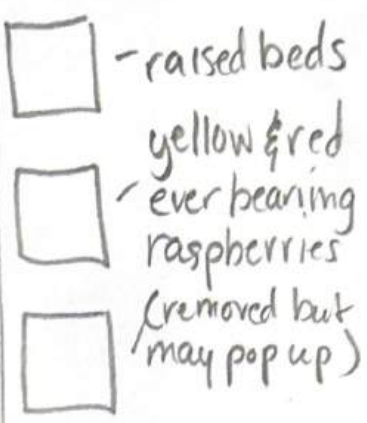 -raised beds
yellow & red
ever bearing
raspberries
(removed but
may pop up)